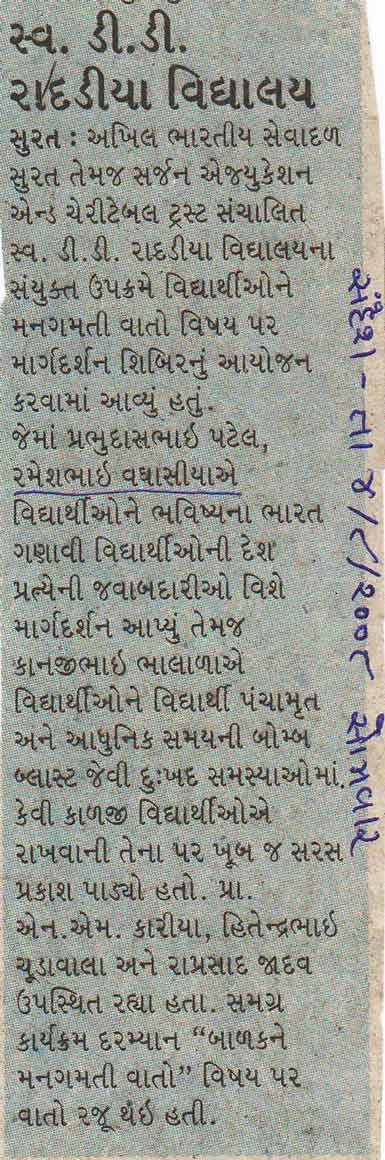 સ્વ. ડી.ડી.
રાદડીયા વિદ્યાલય
સુરત : અખિલ ભારતીય સેવાદળ
સુરત તેમજ સર્જન એજયુકેશન
એન્ડ ચેરીટેબલ ટ્રસ્ટ સંચાલિત
સ્વ. ડી.ડી. રાદડીયા વિદ્યાલયના
સંયુક્ત ઉપક્રમે વિદ્યાર્થીઓને
મનગમતી વાતો વિષય પર
માર્ગદર્શન શિબિરનું આયોજન
કરવામાં આવ્યું હતું.
જેમાં પ્રભુદાસભાઇ પટેલ,
રમેશભાઇ વઘાસીયાએ
વિદ્યાર્થીઓને ભવિષ્યના ભારત
ગણાવી વિદ્યાર્થીઓની દેશ
પ્રત્યેની જવાબદારીઓ વિશે
માર્ગદર્શન આપ્યું તેમજ
કાનજીભાઇ ભાલાળાએ
વિદ્યાર્થીઓને વિદ્યાર્થી પંચામૃત
અને આધુનિક સમયની બોમ્બ
બ્લાસ્ટ જેવી દુઃખદ સમસ્યાઓમાં.
કેવી કાળજી વિદ્યાર્થીઓએ
રાખવાની તેના પર ખૂબ જ સરસ
પ્રકાશ પાડ્યો હતો. પ્રા.
એન.એમ. કારીયા, હિતેન્દ્રભાઇ
ચૂડાવાલા અને રાપ્રસાદ જાદવ
ઉપસ્થિત રહ્યા હતા. સમગ્ર
કાર્યક્રમ દરમ્યાન “બાળકને
મનગમતી વાતો” વિષય પર
વાતો રજૂ થઇ હતી.
સંદેશ - તા ૪/૮/૨૦૦૮ સોમવાર